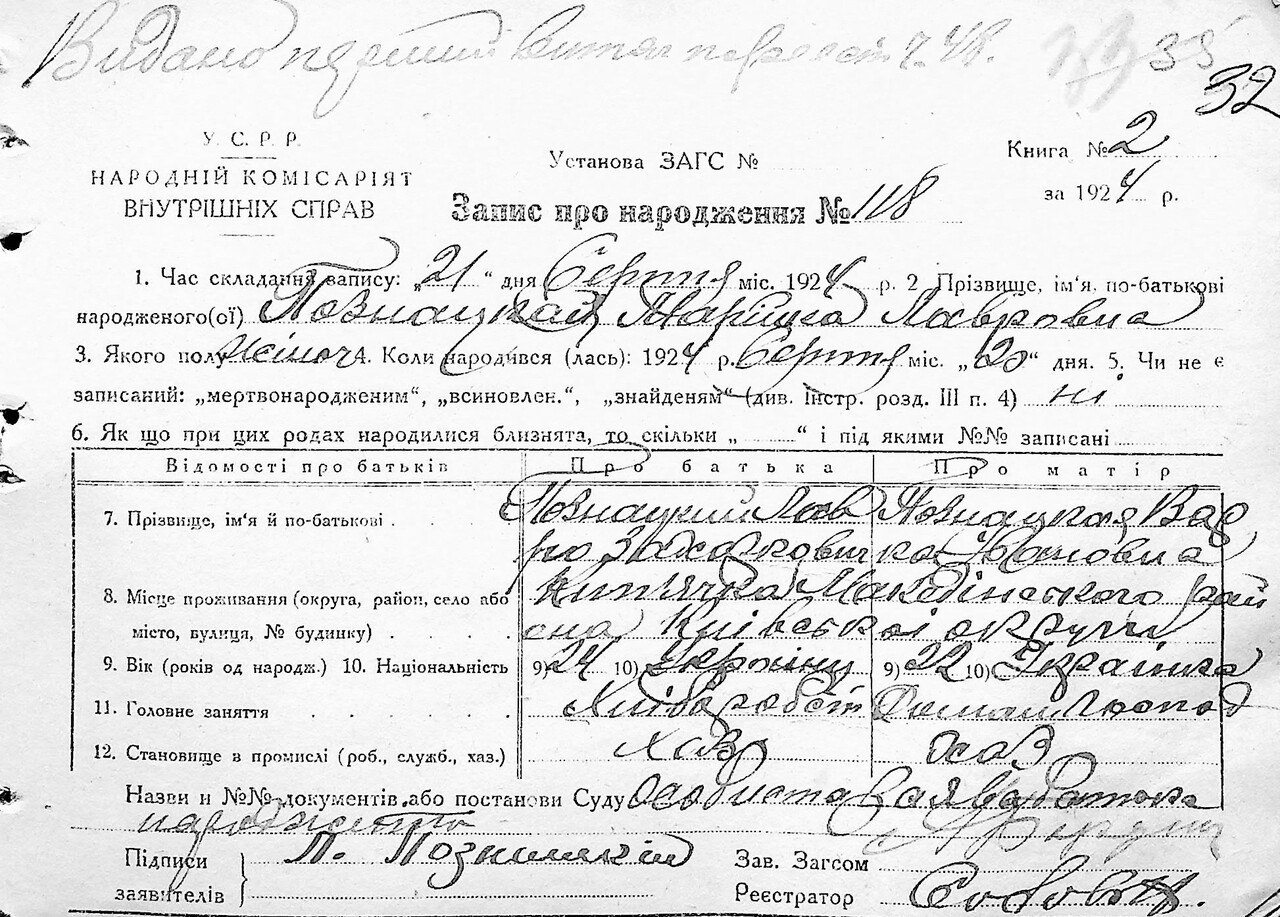 Видано перший витяг по реєст. ч. 48. 33 35
32
У. С. Р. Р.
НАРОДНІЙ КОМІСАРІЯТ
ВНУТРІШНІХ СПРАВ
Установа ЗАГС №
Книга № 2
за 1924 р.
Запис про народження № 118
1. Час складання запису: „21“ дня Серпня міс. 1924 р. 2 Прізвище, ім'я, по-батькові
народженого(ої) Познацкая Марина Лавровна
3. Якого полу жіноч 4. Коли народився (лась): 1924 р. Серпня міс. „20“ дня. 5. Чи не є
записаний: „мертвонародженим“, „всиновлен.“, „знайденям“ (див. Інстр. розд. III п. 4) ні
6. Як що при цих родах народилися близнята, то скільки „ “ і під якими №№ записані
Відомості про батьків Про батька Про матір
7. Прізвище, ім'я й по-батькові Познацкий Лав Познацкая Вар
ка Ивановна
8. Місце проживання (округа, район, село або Кип'ячка Македінського рай
місто, вулиця, № будинку) она, Київської округи
9. Вік (років од народж.) 10. Національність 9) 24 10) Украінц 9) 22 10) Украінка
11. Головне заняття Хліборобст Домаш. господ
12. Становище в промислі (роб., служб., хаз.) хаз
Назви и №№ документів або постанови Суду Особиста заява батька
Підписи Л. Познацкій Зав. Загсом
заявителів Реєстратор